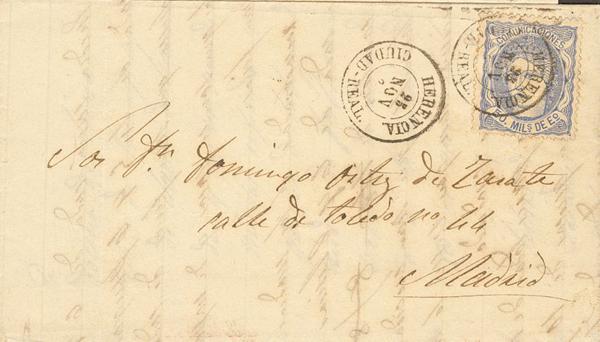 COMUNICACIONES
50. MILS. DE EO.
HERENCIA
25
NOV
CIUDAD-REAL
HERENCIA
Sor Dn Domingo Ortiz de Zarate
calle de Toledo no 44
Madrid